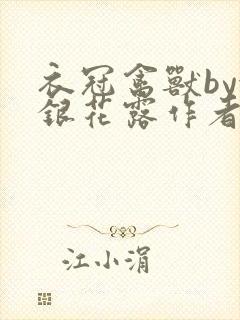 衣冠禽獸by
銀花露作者
江小涓